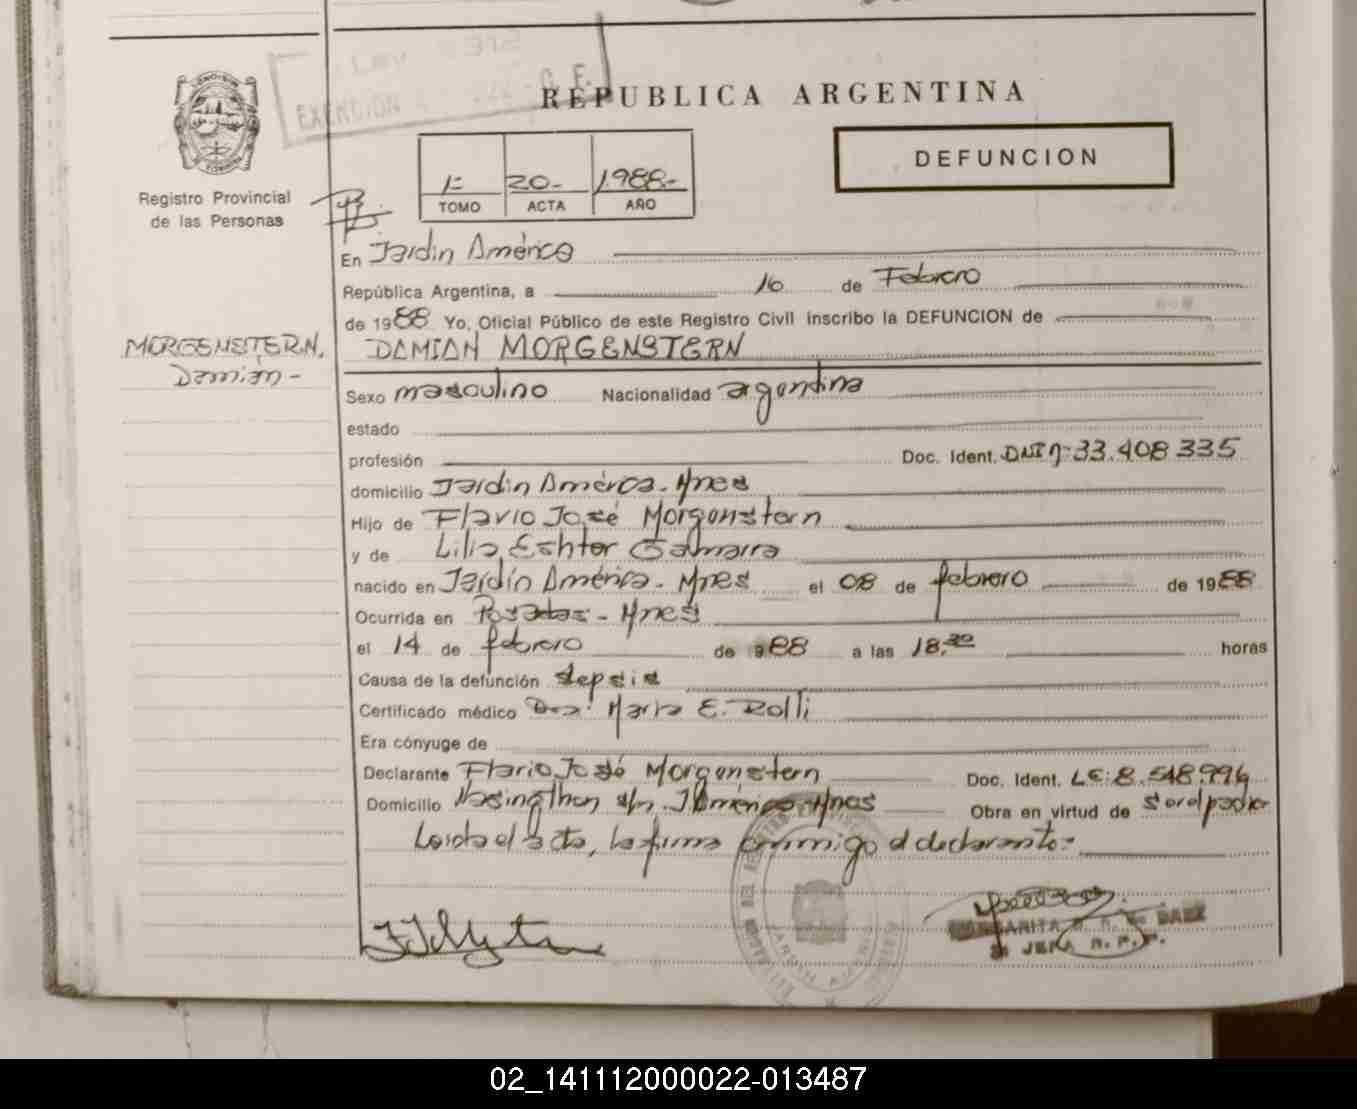 Ley 912
EXENCION G. E.
REPUBLICA ARGENTINA
DEFUNCION
1- 20- 1988-
TOMO ACTA AÑO
Registro Provincial
de las Personas
En Jardin América
República Argentina, a 16 de Febrero
de 1988 Yo, Oficial Público de este Registro Civil inscribo la DEFUNCION de
MORGENSTERN, Damián -
DAMIAN MORGENSTERN
Sexo masculino Nacionalidad argentina
estado
profesión Doc. Ident. DNI Nº 33.408 335
domicilio Jardin América - Mnes
Hijo de Flavio José Morgenstern
y de Lilia Eshter Gamarra
nacido en Jardín América - Mnes el 08 de febrero de 1988
Ocurrida en Posadas - Mnes
el 14 de febrero de 1988 a las 18,30 horas
Causa de la defunción sepsis
Certificado médico Dra. María E. Rolli
Era cónyuge de
Declarante Flavio José Morgenstern Doc. Ident. LE: 8.548.994
Domicilio s/n. J. América - Mnes Obra en virtud de ser el padre
Leída el acta, la firma conmigo el declarante -
BAEZ
JEFA R. P. P.
02_141112000022-013487